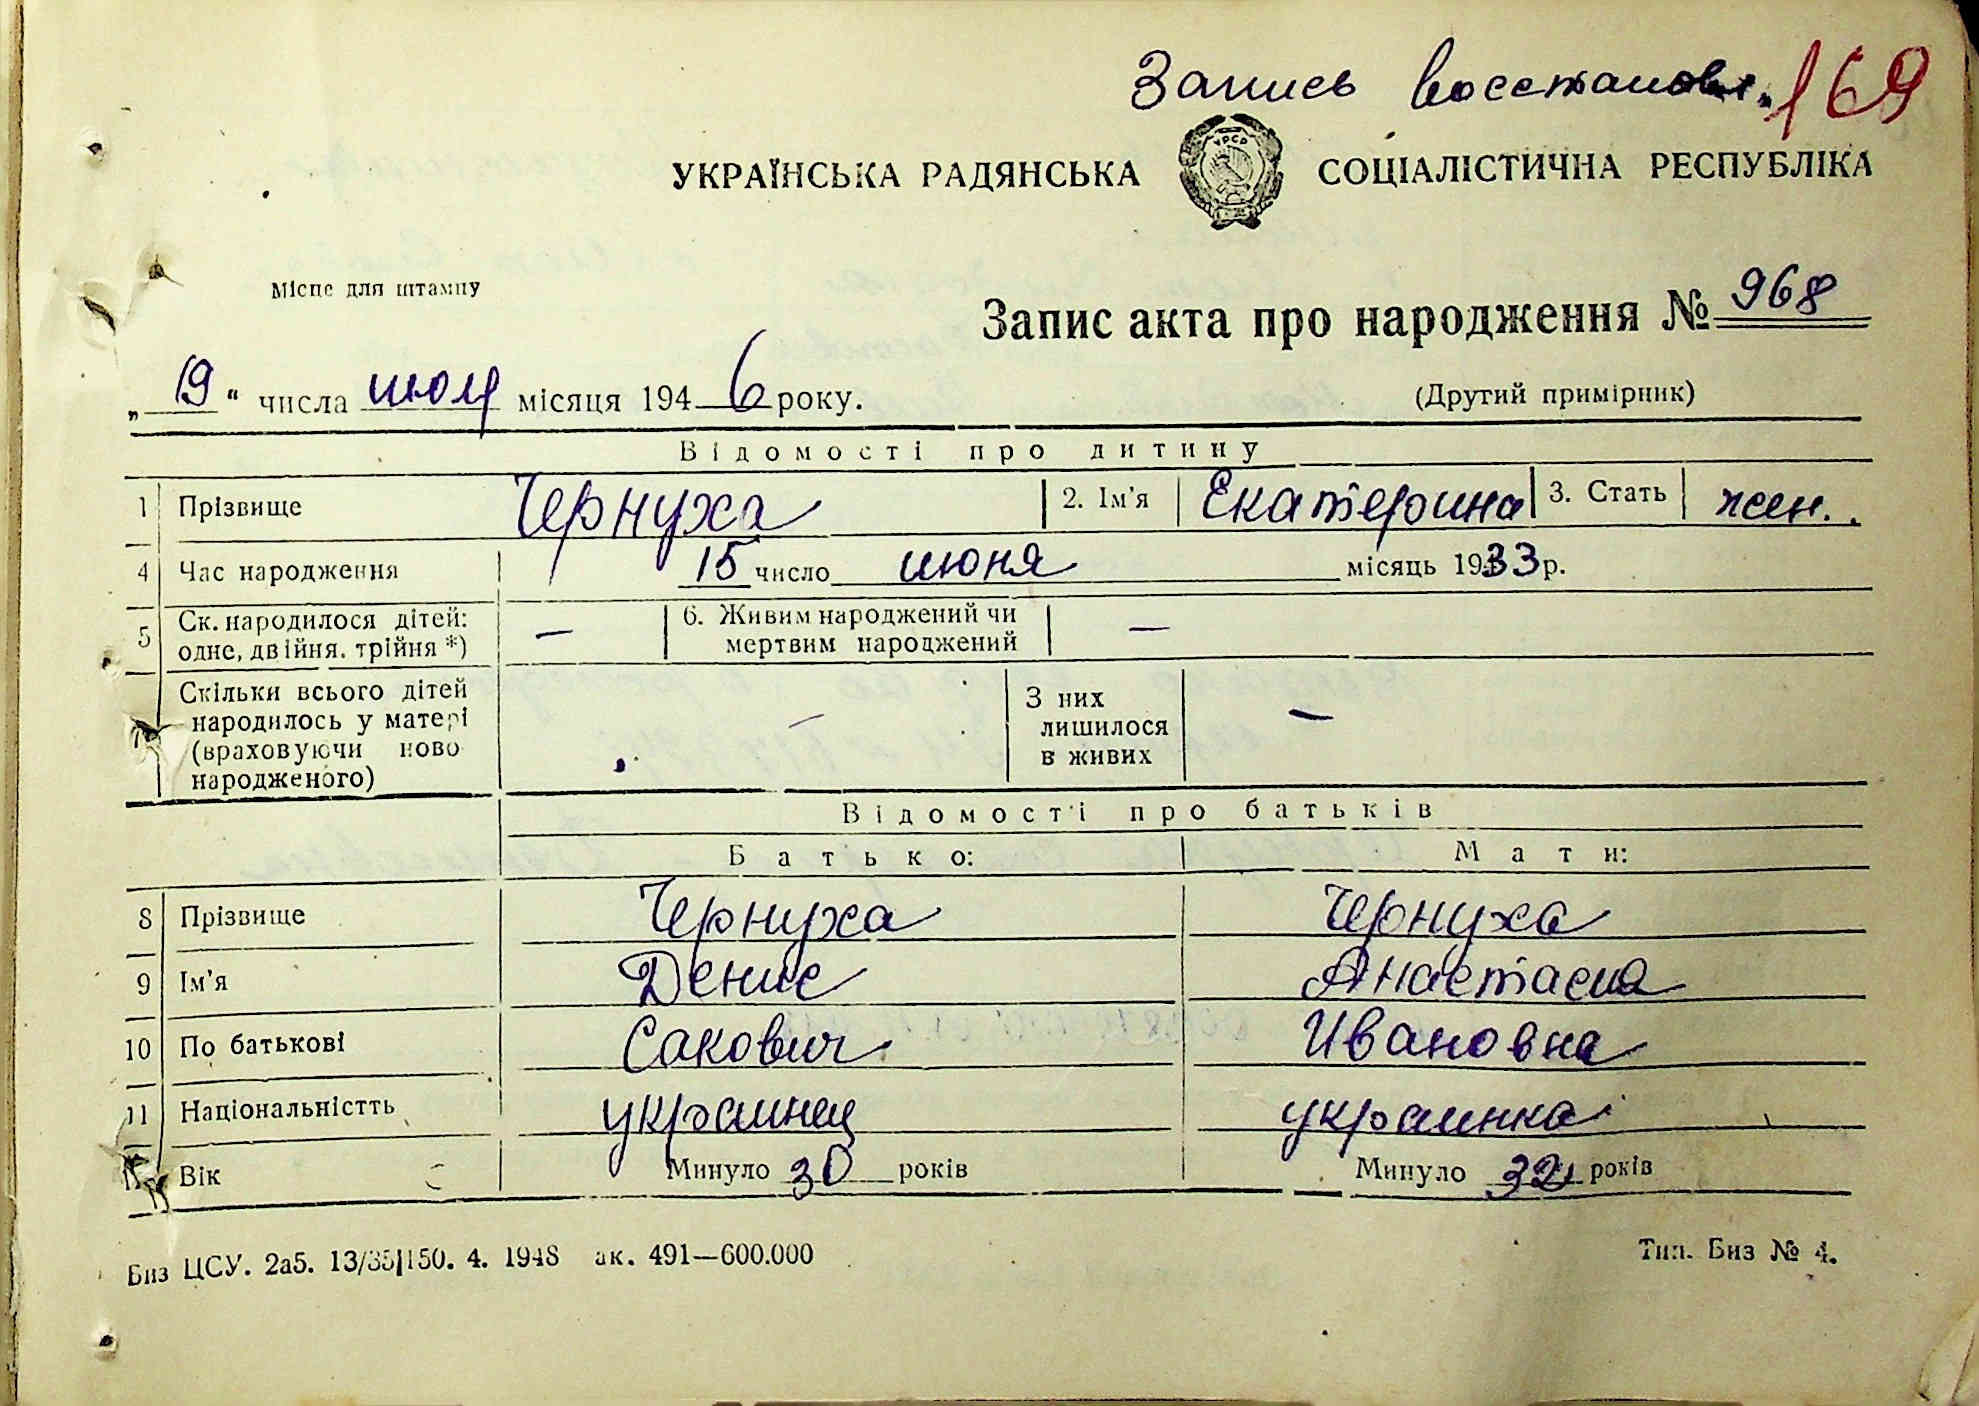 Запись восстановл. 169
УКРАЇНСЬКА РАДЯНСЬКА СОЦІАЛІСТИЧНА РЕСПУБЛІКА
УРСР
Місце для штампу
Запис акта про народження № 968
„19“ числа июля місяця 1946 року.
(Другий примірник)
Відомості про дитину
1 Прізвище Чернуха 2. Ім'я Екатерина 3. Стать жен.
4 Час народження 15 число июня місяць 1933 р.
5 Ск. народилося дітей: — 6. Живим народжений чи —
одне, двійня, трійня *) мертвим народжений
Скільки всього дітей З них
народилось у матері — лишилося —
(враховуючи ново в живих
народженого)
Відомості про батьків
Батько: Мати:
8 Прізвище Чернуха Чернуха
9 Ім'я Денис Анастасия
10 По батькові Сакович Ивановна
11 Національністть украинец украинка
Вік Минуло 30 років Минуло 32 років
Биз ЦСУ. 2а5. 13/35|150. 4. 1948 ак. 491—600.000 Тип. Биз № 4.